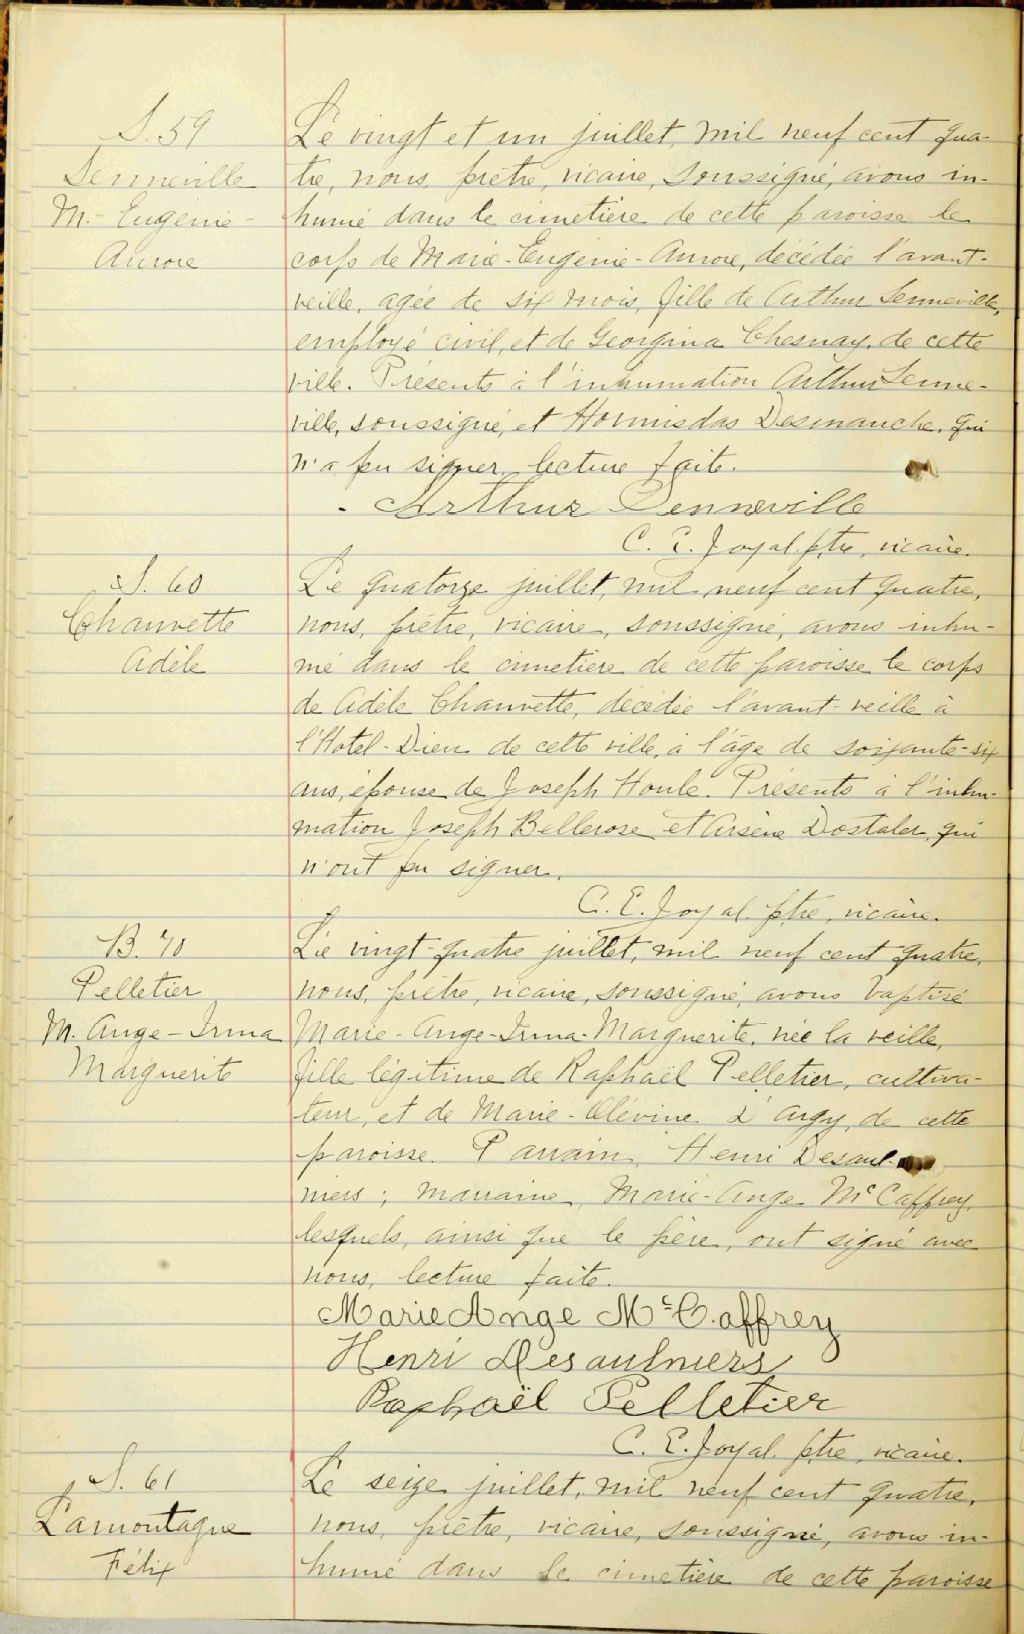 S. 59
Senneville
M.- Eugénie-
Aurore
Le vingt et un juillet, mil neuf cent qua-
tre, nous, prêtre, vicaire, soussigné, avons in-
humé dans le cimetière de cette paroisse le
corps de Marie-Eugénie-Aurore, décédée l'avant-
veille, agée de six mois, fille de Arthur Senneville,
employé civil, et de Georgina Chesnay, de cette
ville. Présents à l'inhumation Arthur Senne-
ville, soussigné, et Hormisdas Desmanche, qui
n'a pu signer, lecture faite.
Arthur Senneville
C. E. Joyal. ptre, vicaire.
S. 60
Chauvette
Adèle
Le quatorze juillet, mil neuf cent quatre,
nous, prêtre, vicaire, soussigné, avons inhu-
mé dans le cimetière de cette paroisse le corps
de Adèle Chauvette, décédée l'avant-veille à
l'Hotel-Dieu de cette ville, à l'âge de soixante-six
ans, épouse de Joseph Houle. Présents à l'inhu-
mation Joseph Bellerose et Arsène Dostaler, qui
n'ont pu signer.
C. E. Joyal. ptre, vicaire.
B. 70
Pelletier
M. Ange-Irma
Marguerite
Le vingt-quatre juillet, mil neuf cent quatre,
nous, prêtre, vicaire, soussigné, avons baptisé
Marie-Ange-Irma-Marguerite, née la veille,
fille légitime de Raphaël Pelletier, cultiva-
teur, et de Marie-Olévine D'Argy, de cette
paroisse. Parrain, Henri Desaul-
niers; marraine, Marie-Ange McCaffrey,
lesquels, ainsi que le père, ont signé avec
nous, lecture faite.
Marie Ange McCaffrey
Henri Desaulniers
Raphaël Pelletier
C. E. Joyal. ptre, vicaire.
S. 61
Lamontagne
Félix
Le seize juillet, mil neuf cent quatre,
nous, prêtre, vicaire, soussigné, avons in-
humé dans le cimetière de cette paroisse